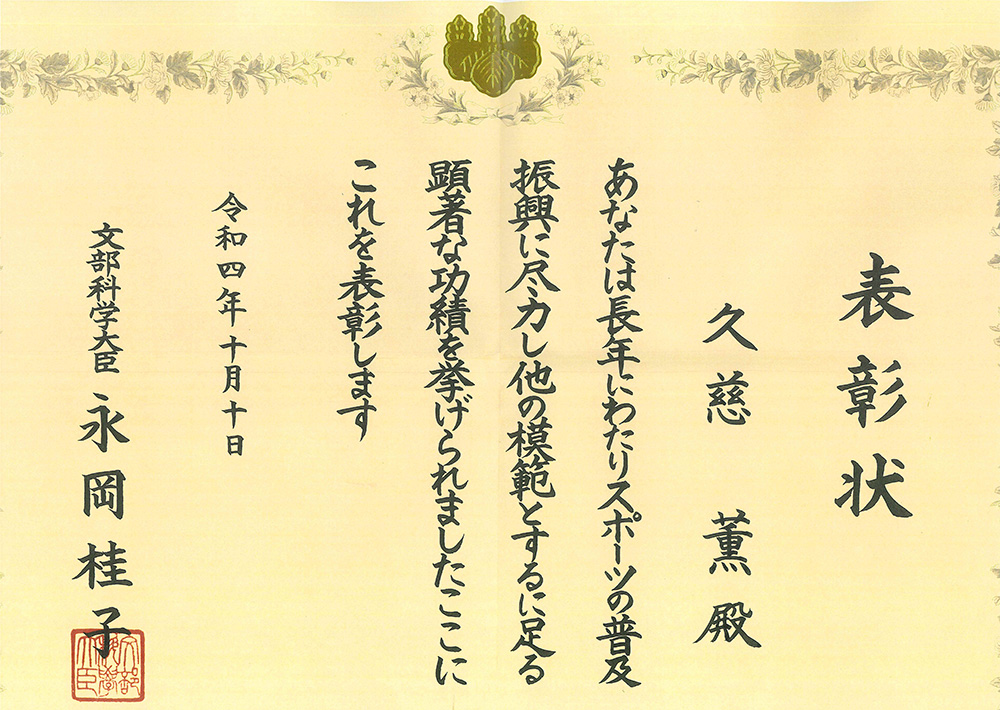 表彰状
久慈 薫殿
あなたは長年にわたりスポーツの普及
振興に尽力し他の模範とするに足る
顕著な功績を挙げられましたここに
これを表彰します
令和四年十月十日
文部科学大臣 永岡桂子
文部科学大臣